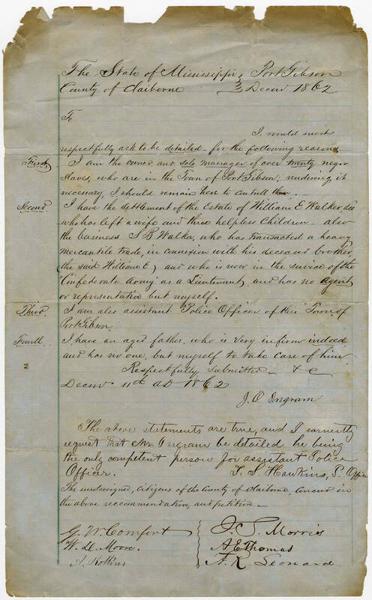 The State of Mississippi, Port Gibson
County of Claiborne Decmr 1862
To
I would most
respectfully ask to be detailed for the following reasons
First I am the owner and sole manager of over twenty negro
slaves, who are in the Town of Port Gibson, rendering it
necessary I should remain here to control them.
Second I have the settlement of the Estate of William E Walker
who has left a wife and three helpless children. also
the business J B Walker, who has transacted a heavy
mercantile trade, in connexion with his deceased brother
the said William E, and who is now in the service of the
Confederate Army as a Lieutenant, and has no Agent
or representative but myself.
Third I am also assistant Police Officer of this Town of
Port Gibson.
Fourth I have an aged father, who is very infirm indeed
and has no one, but myself to take care of him.
2
Respectfully Submitted &c
Decmr 11th AD 1862
J. O Ingram
The above statements are true, and I earnestly
request that Mr Ingram be detailed he being
the only competent person for assistant Police
Officer. Hawkins,
The undersigned, citizens of the County of Claiborne, concur in
the above recommendation, and petition
G. W. Comfort
W. D. Moore
J. S. Morris
A E Thomas
A. K Leonard